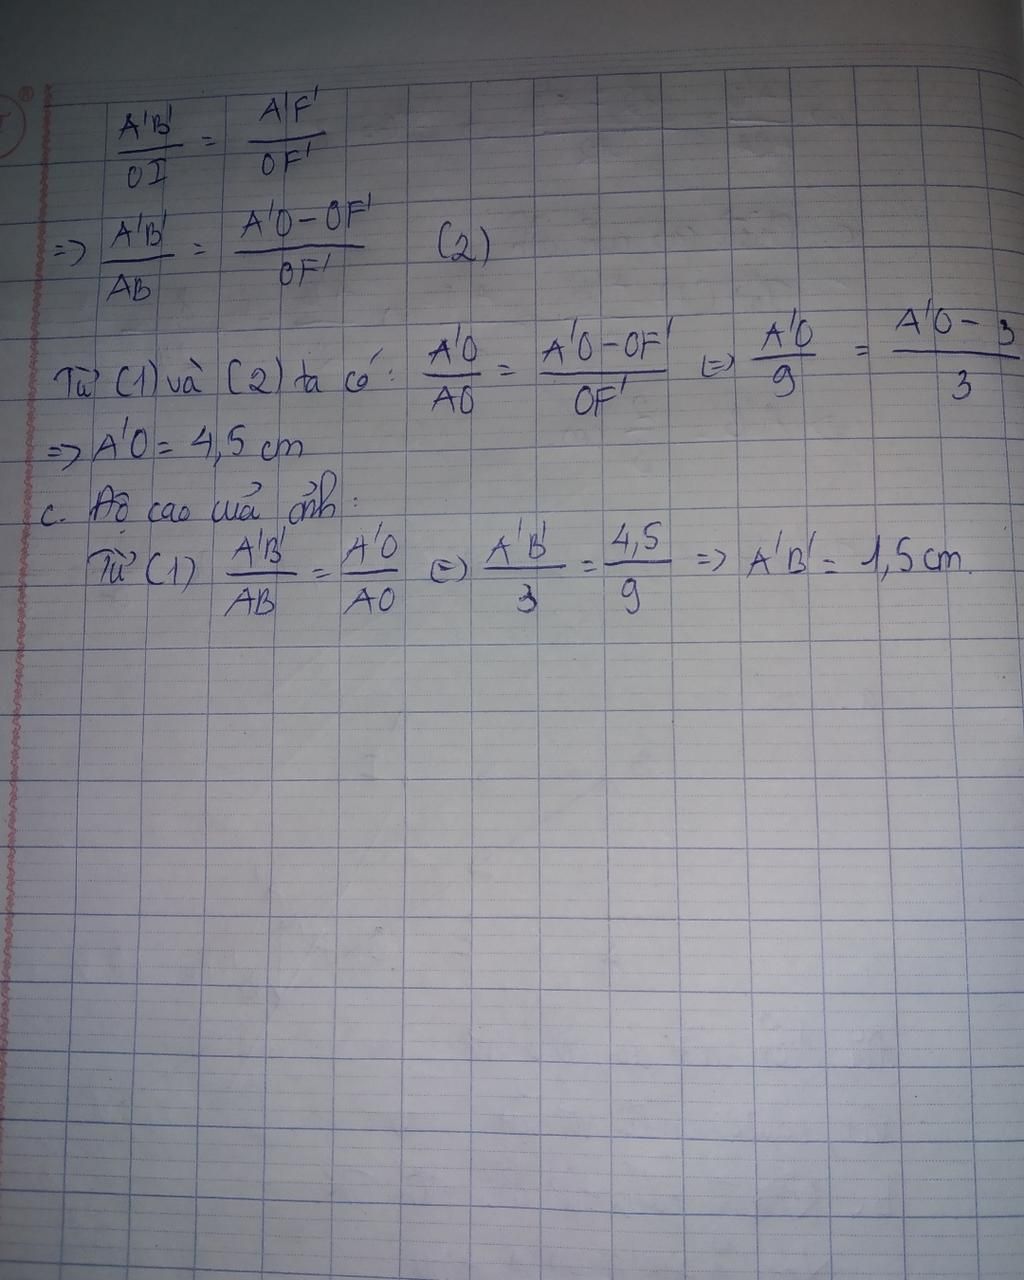 A'B'/OI = A'F'/OF'
=> A'B'/AB = A'O-OF'/OF' (2)
Từ (1) và (2) ta có: A'O/AO = A'O-OF'/OF' <=> A'O/9 = A'O-3/3
=> A'O = 4,5 cm
c. Độ cao của ảnh:
Từ (1) A'B'/AB = A'O/AO <=> A'B'/3 = 4,5/9 => A'B' = 1,5 cm.